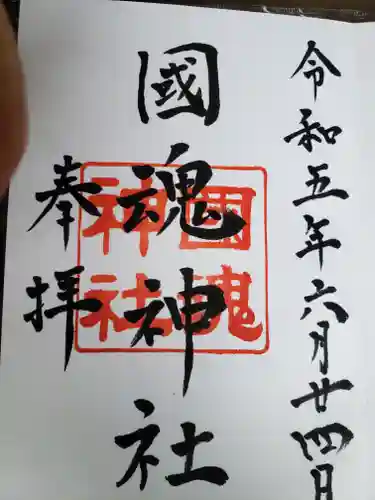 令和五年六月廿四日
國魂神社
奉拝
國魂
神社